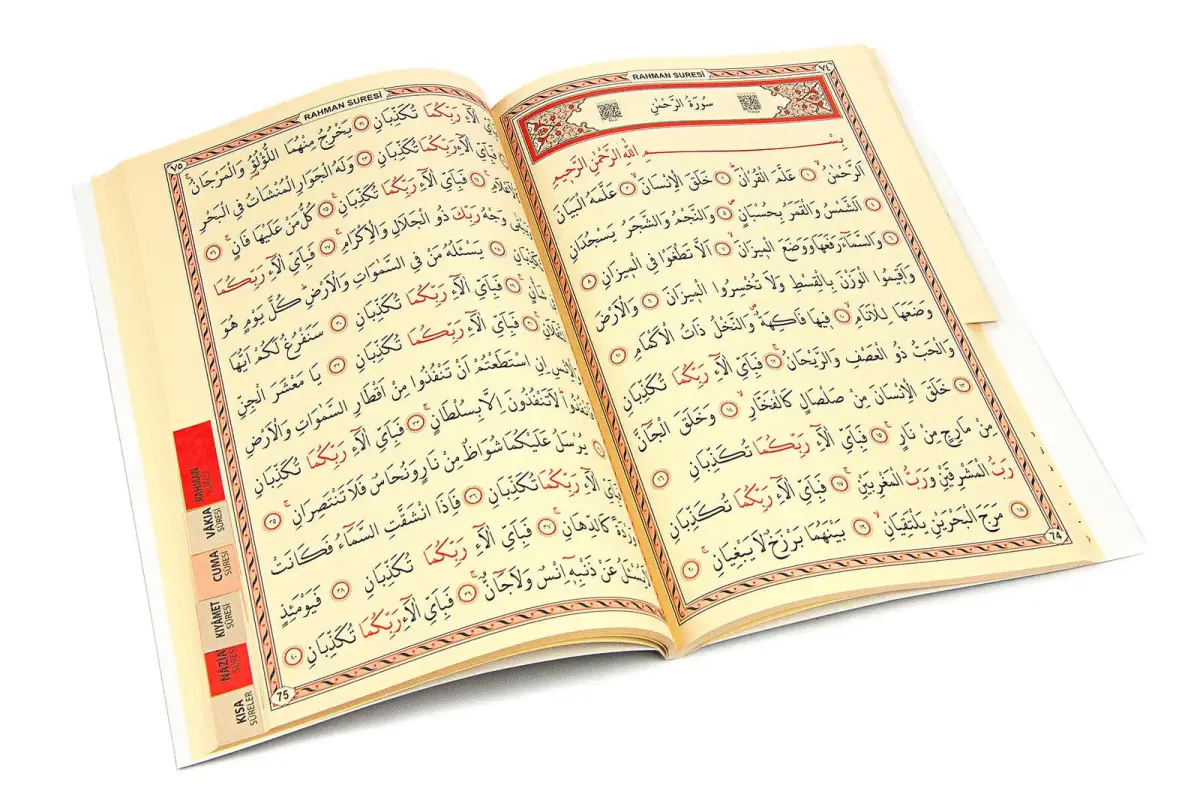 RAHMAN SURESİ
٧٤
سُورَةُ الرَّحْمٰنِ
بِسْمِ اللّٰهِ الرَّحْمٰنِ الرَّحِيمِ
اَلرَّحْمٰنُۙ ١ عَلَّمَ الْقُرْاٰنَۜ ٢ خَلَقَ الْاِنْسَانَۙ ٣ عَلَّمَهُ الْبَيَانَ
٤ اَلشَّمْسُ وَالْقَمَرُ بِحُسْبَانٍۖ ٥ وَالنَّجْمُ وَالشَّجَرُ يَسْجُدَانِ
٦ وَالسَّمَٓاءَ رَفَعَهَا وَوَضَعَ الْمِيزَانَۙ ٧ اَلَّا تَطْغَوْا فِي الْمِيزَانِ ٨
وَاَقِيمُوا الْوَزْنَ بِالْقِسْطِ وَلَا تُخْسِرُوا الْمِيزَانَ ٩ وَالْاَرْضَ
وَضَعَهَا لِلْاَنَامِۙ ١٠ فِيهَا فَاكِهَةٌۖ وَالنَّخْلُ ذَاتُ الْاَكْمَامِ ١١
وَالْحَبُّ ذُو الْعَصْفِ وَالرَّيْحَانُۚ ١٢ فَبِاَيِّ اٰلَٓاءِ رَبِّكُمَا تُكَذِّبَانِ
١٣ خَلَقَ الْاِنْسَانَ مِنْ صَلْصَالٍ كَالْفَخَّارِۙ ١٤ وَخَلَقَ الْجَٓانَّ
مِنْ مَارِجٍ مِنْ نَارٍۚ ١٥ فَبِاَيِّ اٰلَٓاءِ رَبِّكُمَا تُكَذِّبَانِ ١٦
رَبُّ الْمَشْرِقَيْنِ وَرَبُّ الْمَغْرِبَيْنِۚ ١٧ فَبِاَيِّ اٰلَٓاءِ رَبِّكُمَا تُكَذِّبَانِ
١٨ مَرَجَ الْبَحْرَيْنِ يَلْتَقِيَانِۙ ١٩ بَيْنَهُمَا بَرْزَخٌ لَا يَبْغِيَانِۚ ٢٠
74
RAHMAN SURESİ
٧٥
اٰلَٓاءِ رَبِّكُمَا تُكَذِّبَانِ ٢١ يَخْرُجُ مِنْهُمَا اللُّؤْلُؤُ وَالْمَرْجَانُۚ
فَبِاَيِّ اٰلَٓاءِ رَبِّكُمَا تُكَذِّبَانِ ٢٣ وَلَهُ الْجَوَارِ الْمُنْشَاٰتُ فِي الْبَحْرِ
٢٤ فَبِاَيِّ اٰلَٓاءِ رَبِّكُمَا تُكَذِّبَانِ ٢٥ كُلُّ مَنْ عَلَيْهَا فَانٍۚ ٢٦
وَجْهُ رَبِّكَ ذُو الْجَلَالِ وَالْاِكْرَامِۚ ٢٧ فَبِاَيِّ اٰلَٓاءِ رَبِّكُمَا
٢٨ يَسْـَٔلُهُ مَنْ فِي السَّمٰوَاتِ وَالْاَرْضِۜ كُلَّ يَوْمٍ هُوَ
٢٩ فَبِاَيِّ اٰلَٓاءِ رَبِّكُمَا تُكَذِّبَانِ ٣٠ سَنَفْرُغُ لَكُمْ اَيُّهَ
٣١ فَبِاَيِّ اٰلَٓاءِ رَبِّكُمَا تُكَذِّبَانِ ٣٢ يَا مَعْشَرَ الْجِنِّ
اِنِ اسْتَطَعْتُمْ اَنْ تَنْفُذُوا مِنْ اَقْطَارِ السَّمٰوَاتِ وَالْاَرْضِ
لَا تَنْفُذُونَ اِلَّا بِسُلْطَانٍۚ ٣٣ فَبِاَيِّ اٰلَٓاءِ رَبِّكُمَا تُكَذِّبَانِ
يُرْسَلُ عَلَيْكُمَا شُوَاظٌ مِنْ نَارٍ وَنُحَاسٌ فَلَا تَنْتَصِرَانِۚ ٣٥
اٰلَٓاءِ رَبِّكُمَا تُكَذِّبَانِ ٣٦ فَاِذَا انْشَقَّتِ السَّمَٓاءُ فَكَانَتْ
كَالدِّهَانِۚ ٣٧ فَبِاَيِّ اٰلَٓاءِ رَبِّكُمَا تُكَذِّبَانِ ٣٨ فَيَوْمَئِذٍ
عَنْ ذَنْبِهٓ اِنْسٌ وَلَا جَٓانٌّۚ ٣٩ فَبِاَيِّ اٰلَٓاءِ رَبِّكُمَا تُكَذِّبَانِ ٤٠
75
RAHMAN
SURESİ
VÂKIA
SÛRESİ
CUMA
SÛRESİ
KIYÂMET
SÛRESİ
KISA
SÛRELER